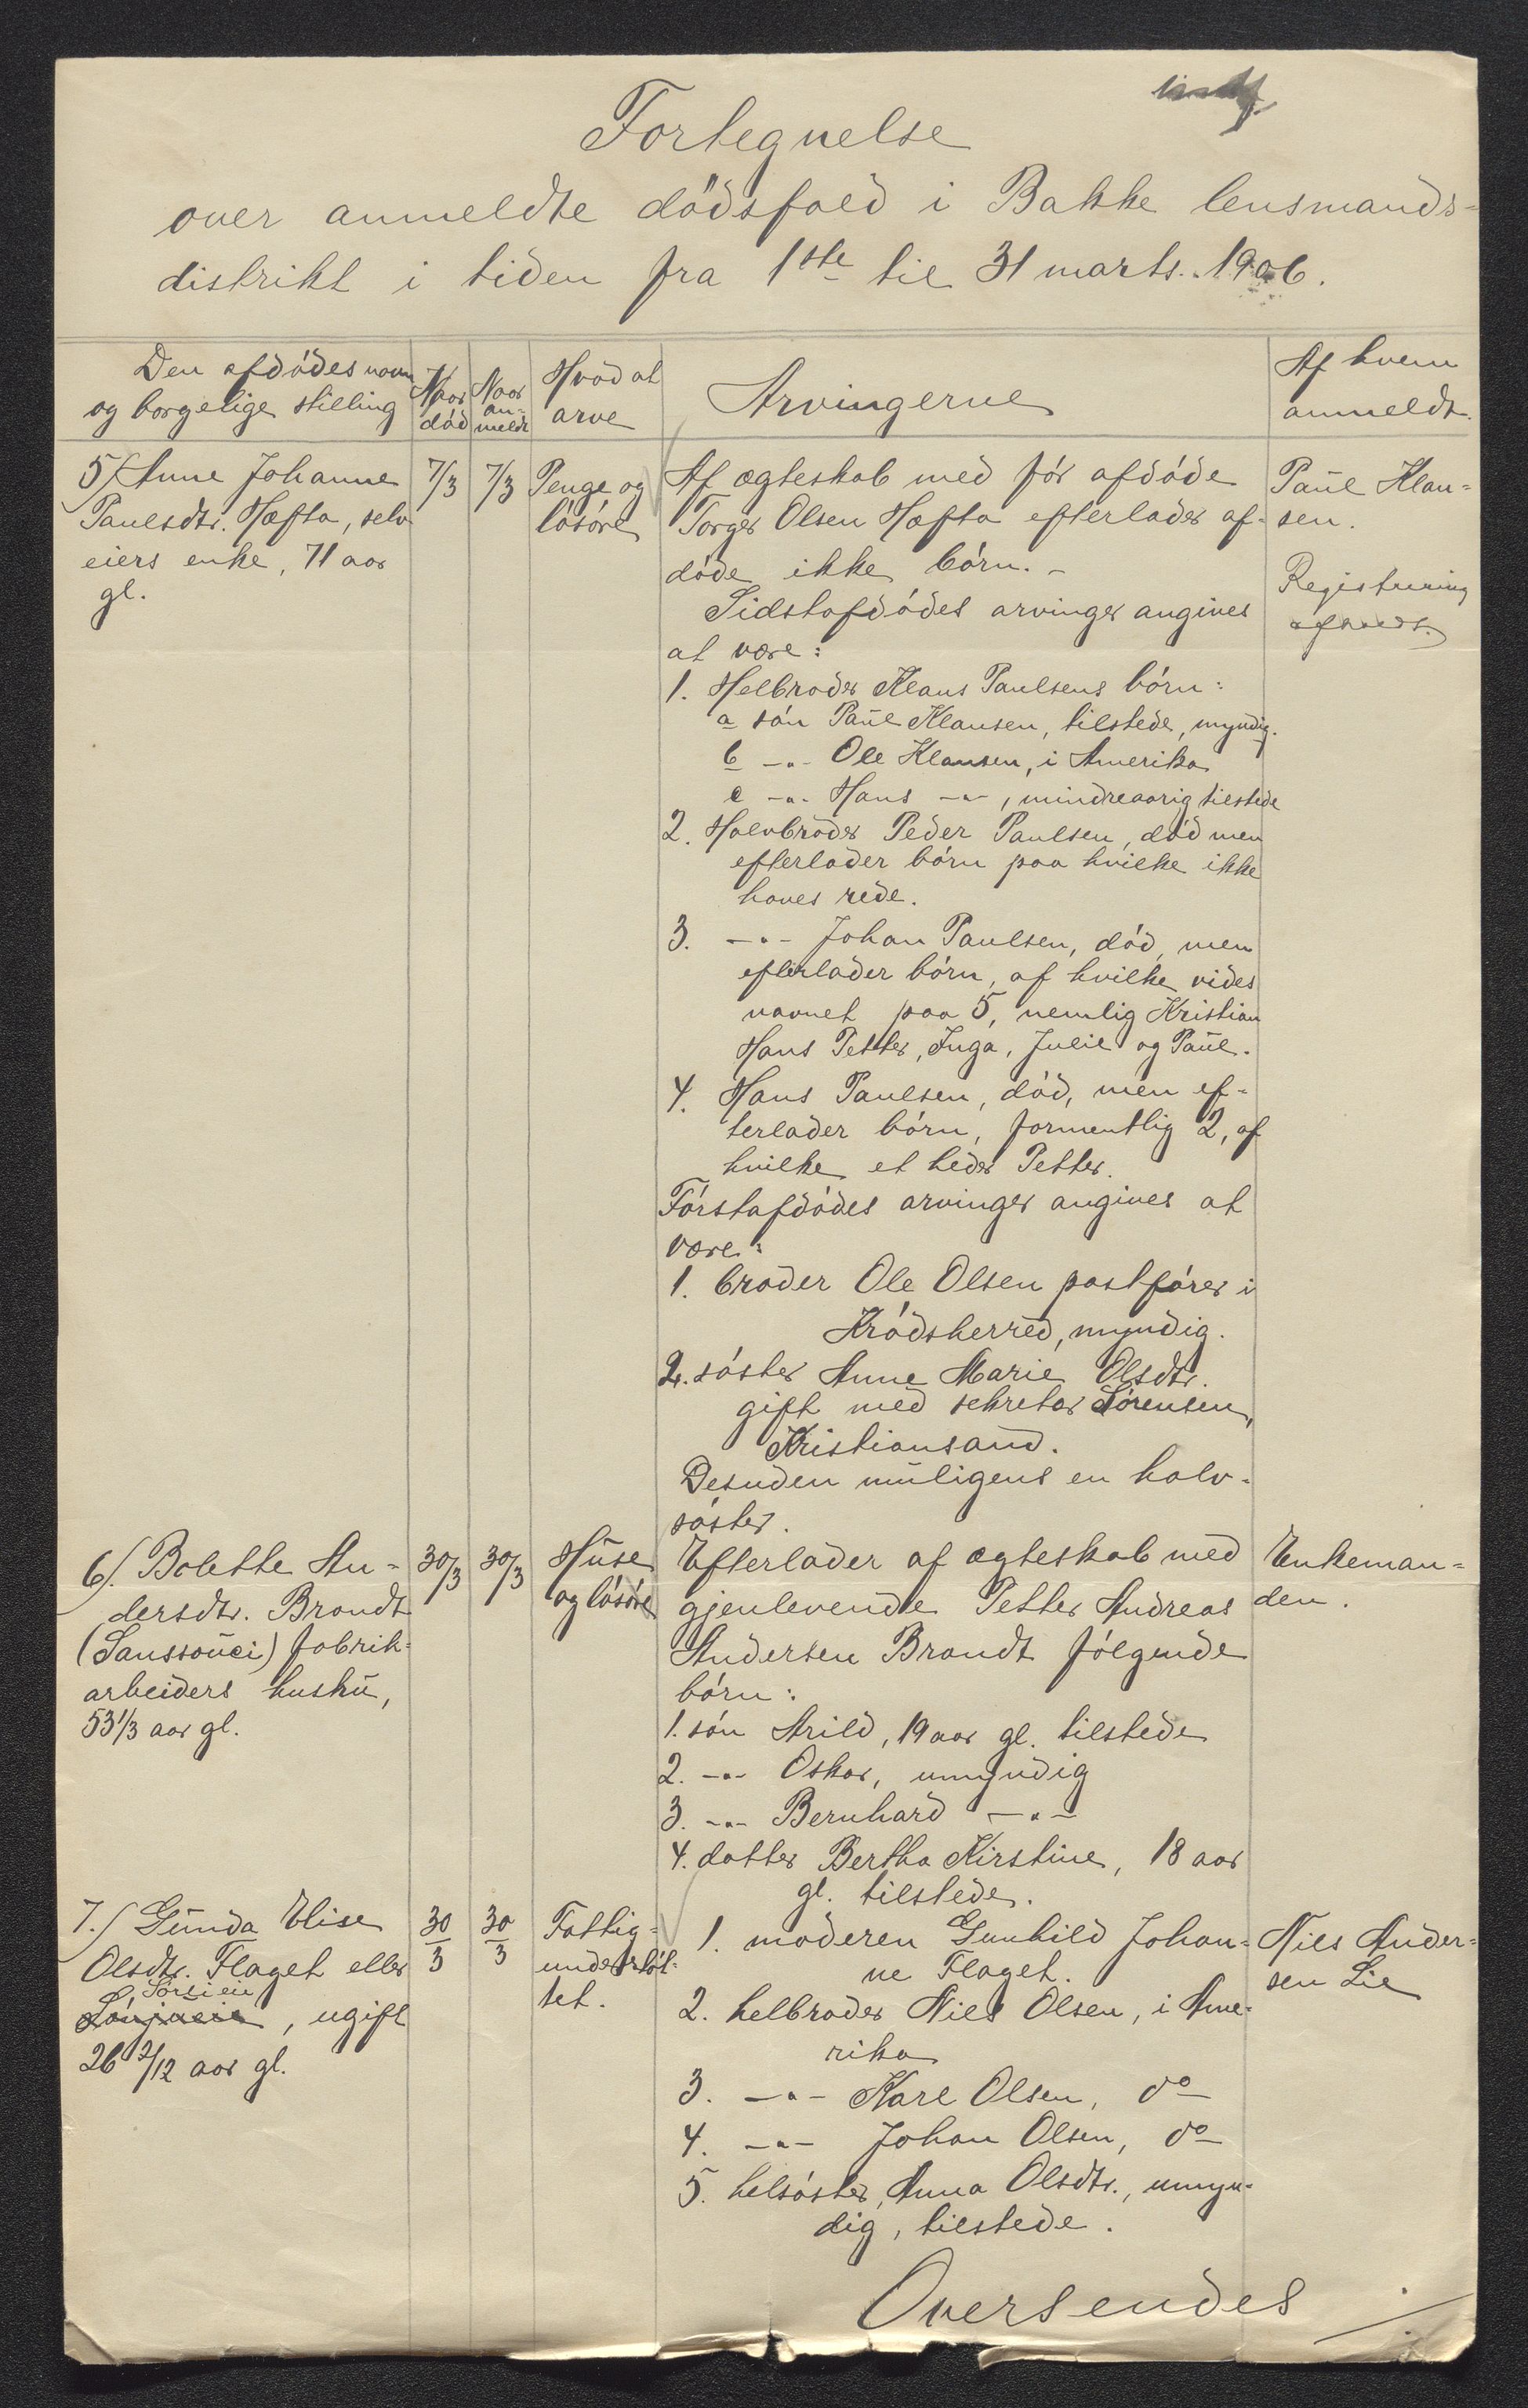 Fortegnelse
over anmeldte dödsfald i Bakke lensmands-
distrikt i tiden fra 1ste til 31 marts. 1906.
Den afdödes navn
og borgelige stilling
Naar
död
Naar
an-
meldt
Hvad at
arve
Arvingerne
Af hvem
anmeldt.
5/ Anne Johanne
Paulsdtr. Hæfta, selv-
eiers enke, 71 aar
gl.
7/3
7/3
Penge og
lösöre
Af ægteskab med för afdöde
Torger Olsen Hæfta efterlader af-
döde ikke börn. -
Sidstafdödes arvinger angives
at være:
1. Helbroder Klaus Paulsens börn:
a sön Paul Klausen, tilstede, myndig.
b -"- Ole Klausen, i Amerika
c -"- Hans -"-, mindreaarig tilstede
2. Halvbroder Peder Paulsen, död men
efterlader börn paa hvilke ikke
haves rede.
3. -"- Johan Paulsen, död, men
efterlader börn, af hvilke vides
navnet paa 5, nemlig Kristian
Hans Petter, Inga, Julie og Paul.
4. Hans Paulsen, död, men ef-
terlader börn, formentlig 2, af
hvilke et heder Petter.
Förstafdödes arvinger angives at
være:
1. broder Ole Olsen postförer i
Krödsherred, myndig.
2. söster Anne Marie Olsdtr.
gift med sekretær Sörensen,
Kristiansand.
Desuden muligens en halv-
söster.
Paul Klau-
sen.
Registrering
6/. Bolette An-
dersdtr. Brandt
(Sanssouci) fabrik-
arbeiders hustru,
53 1/3 aar gl.
30/3
30/3
Huse
og lösöre
Efterlader af ægteskab med
gjenlevende Petter Andreas
Andersen Brandt fölgende
börn:
1. sön Arild, 19 aar gl. tilstede
2. -"- Oskar, umyndig
3. -"- Bernhard -"-
4. datter Bertha Kirstine, 18 aar
gl. tilstede.
Enkeman-
den.
7./ Gunda Elise
Olsdtr. Flaget eller
, ugift
26 2/12 aar gl.
30/3
30/3
Fattig-
understöt-
tet.
1. moderen Gunhild Johan-
ne Flaget.
2. helbroder Niels Olsen, i Ame-
rika
3. -"- Karl Olsen, do
4. -"- Johan Olsen, do
5. helsöster, Anna Olsdtr., umyn-
dig, tilstede.
Nils Ander-
sen Lie
Oversendes